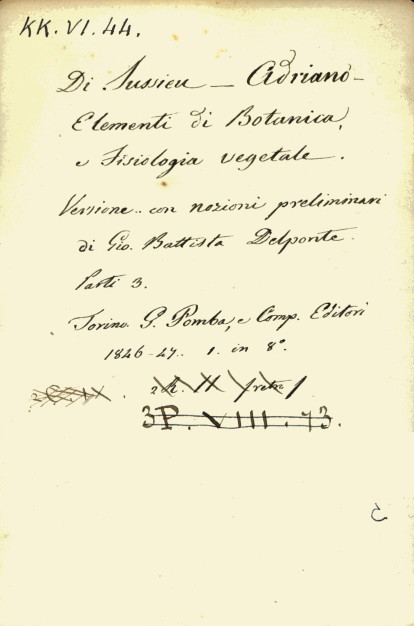 KK. VI. 44.
Di Jussieu — Adriano —
Elementi di Botanica,
e Fisiologia vegetale.
Versione.. con nozioni preliminari
di Gio. Battista Delponte.
Parti 3.
Torino. G. Pomba, e Comp. Editori
1846-47. 1. in 8°.
3P. VIII. 73.